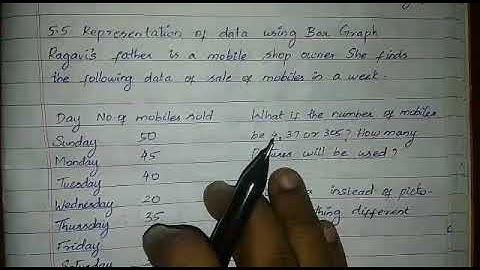 5.5 Representation of data using Bar Graph
Ragavi's father is a mobile shop owner She finds
the following data of sale of mobiles in a week.
Day No. of mobiles sold
Sunday 50
Monday 45
Tuesday 40
Wednesday 20
Thursday 35
Friday
What is the number of mobiles
be 37 or 305? How many
will be used?
instead of picto-
different